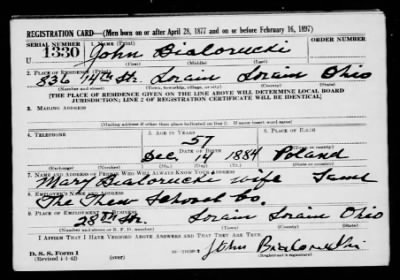 REGISTRATION CARD—(Men born on or after April 28, 1877 and on or before February 16, 1897)
SERIAL NUMBER 1. NAME (Print) ORDER NUMBER
1330 John Bialorucki
(First) (Middle) (Last)
2. PLACE OF RESIDENCE (Print)
336 14th St. Lorain Lorain Ohio
(Number and street) (Town, township, village, or city) (County) (State)
[THE PLACE OF RESIDENCE GIVEN ON THE LINE ABOVE WILL DETERMINE LOCAL BOARD
JURISDICTION; LINE 2 OF REGISTRATION CERTIFICATE WILL BE IDENTICAL]
3. MAILING ADDRESS
[Mailing address if other than place indicated on line 2. If same insert word same]
4. TELEPHONE 5. AGE IN YEARS 6. PLACE OF BIRTH
57
DATE OF BIRTH
Dec. 14 1884 Poland
(Exchange) (Number) (Mo.) (Day) (Yr.) (State or country)
7. NAME AND ADDRESS OF PERSON WHO WILL ALWAYS KNOW YOUR ADDRESS
Mary Bialorucki wife Same
8. EMPLOYER'S NAME AND ADDRESS
The Thew Shovel Co.
9. PLACE OF EMPLOYMENT OR BUSINESS
28th St. Lorain Lorain Ohio
(Number and street or R. F. D. number) (Town) (County) (State)
I AFFIRM THAT I HAVE VERIFIED ABOVE ANSWERS AND THAT THEY ARE TRUE.
D. S. S. Form 1
(Revised 4-1-42) (over) John Bialorucki